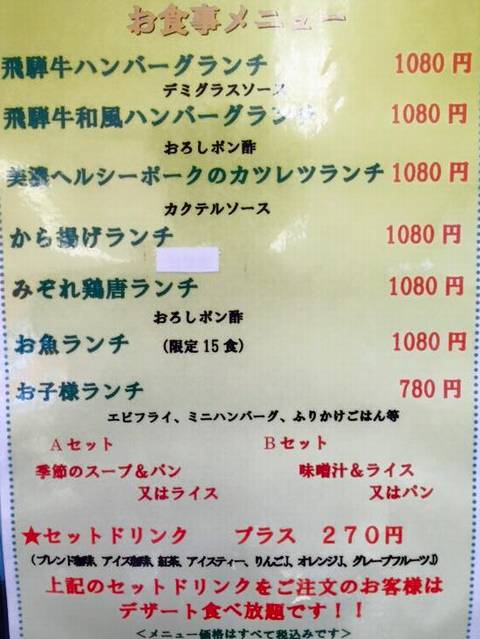 お食事メニュー
飛騨牛ハンバーグランチ 1080円
デミグラスソース
飛騨牛和風ハンバーグランチ 1080円
おろしポン酢
美濃ヘルシーポークのカツレツランチ 1080円
カクテルソース
から揚げランチ 1080円
みぞれ鶏唐ランチ 1080円
おろしポン酢
お魚ランチ (限定15食) 1080円
お子様ランチ 780円
エビフライ、ミニハンバーグ、ふりかけごはん等
Aセット Bセット
季節のスープ&パン 味噌汁&ライス
又はライス 又はパン
★セットドリンク プラス 270円
(ブレンド珈琲、アイス珈琲、紅茶、アイスティー、りんごJ、オレンジJ、グレープフルーツJ)
上記のセットドリンクをご注文のお客様は
デザート食べ放題です!!
<メニュー価格はすべて税込みです>